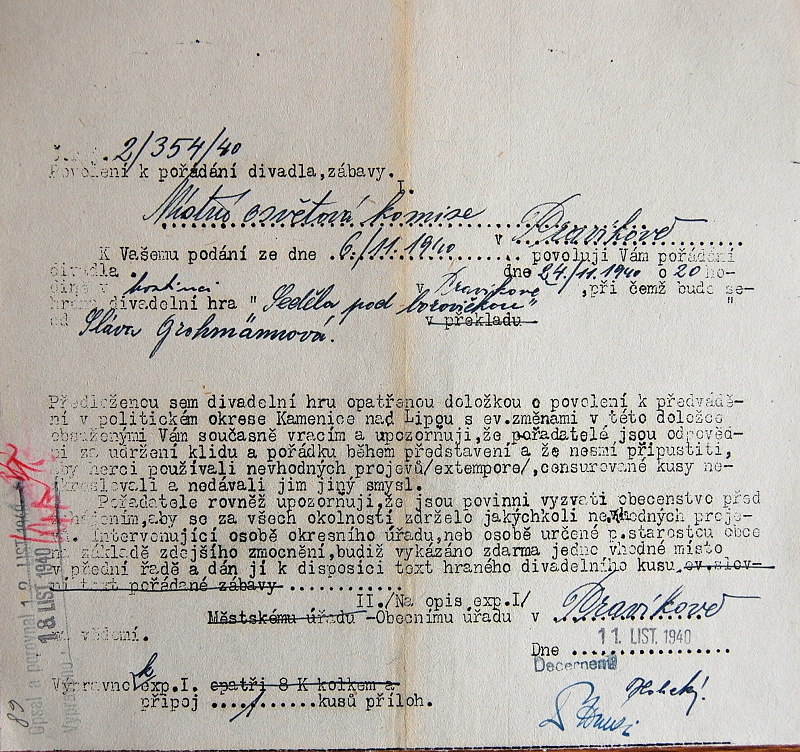 2/354/40
Povolení k pořádání divadla,zábavy.
I.
Místní osvětová komise
v Pravíkově
K Vašemu podání ze dne 6./11.1940 povoluji Vám pořádání
divadla dne 24/11.1940 o 20 ho-
dině v hostinci v Pravíkově ,při čemž bude se-
hrána divadelní hra " Seděla pod borovičkou "
od Sláva Grohmannová. v překladu
Předloženou sem divadelní hru opatřenou doložkou o povolení k předvádě-
ní v politickém okrese Kamenice nad Lipou s ev.změnami v této doložce
obsaženými Vám současně vracím a upozorňuji,že pořadatelé jsou odpověd-
ni za udržení klidu a pořádku během představení a že nesmí připustiti,
aby herci používali nevhodných projevů/extempore/,censurované kusy ne-
zkreslovali a nedávali jim jiný smysl.
Pořadatele rovněž upozorňuji,že jsou povinni vyzvati obecenstvo před
zahájením,aby se za všech okolností zdrželo jakýchkoli nevhodných proje-
vů. Intervenující osobě okresního úřadu,neb osobě určené p.starostou obce
na základě zdejšího zmocnění,budiž vykázáno zdarma jedno vhodné místo
v přední řadě a dán jí k disposici text hraného divadelního kusu ev.slov-
ní text pořádané zábavy
II./Na opis exp.I/
Městskému úřadu -Obecnímu úřadu v Pravíkově
vědení.
Dne 11. LIST. 1940
Decernent
Výpravno k exp.I. opatři 8 K kolkem a
připoj 1 kusů příloh.
Opsal a porovnal 12. LIST. 1940
Vypraveno 18. LIST. 1940
89